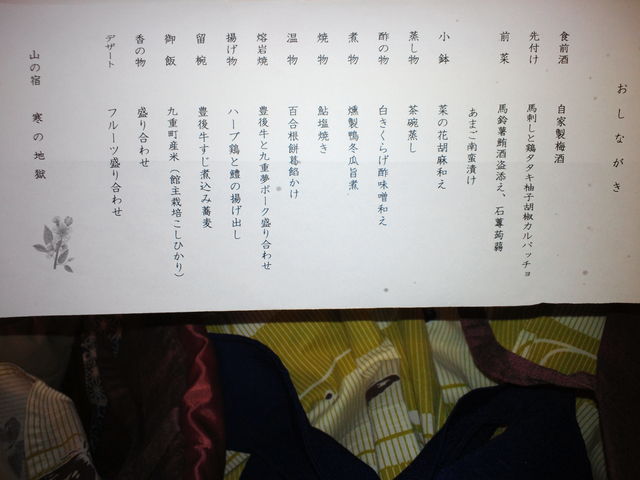 おしながき
食前酒 自家製梅酒
先付け 馬刺しと鶏タタキ柚子胡椒カルパッチョ
前菜 馬鈴薯鮪酒盗添え、石蕈蒟蒻
あまご南蛮漬け
小鉢 菜の花胡麻和え
蒸し物 茶碗蒸し
酢の物 白きくらげ酢味噌和え
煮物 燻製鴨冬瓜旨煮
焼物 鮎塩焼き
温物 百合根餅葛餡かけ
熔岩焼 豊後牛と九重夢ポーク盛り合わせ
揚げ物 ハーブ鶏と鱧の揚げ出し
留椀 豊後牛すじ煮込み蕎麦
御飯 九重町産米(館主栽培こしひかり)
香の物 盛り合わせ
デザート フルーツ盛り合わせ
山の宿 寒の地獄